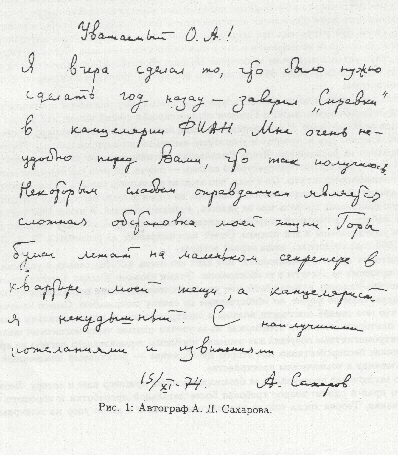 Уважаемый О. А.!
Я вчера сделал то, что было нужно
сделать год назад – заверил „Справки"
в канцелярии ФИАН. Мне очень не-
удобно перед Вами, что так получилось.
Некоторым слабым оправданием является
сложная обстановка моей жизни. Горы
бумаг лежат на маленьком секретере в
квартире моей тещи, а канцелярист
я никудышный. С наилучшими
пожеланиями и извинениями
15/XI-74. А. Сахаров
Рис. 1: Автограф А. Д. Сахарова.